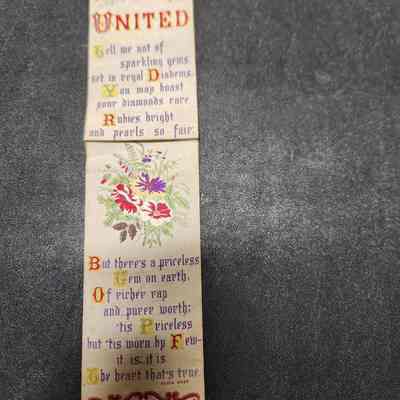 UNITED
Tell me not of
sparkling gems
set in regal Diadems.
You may boast
your diamonds rare
Rubies bright
and pearls so fair:
But there's a priceless
Gem on earth,
Of richer ray
and purer worth;
'tis Priceless
but 'tis worn by Few-
it is, it is
The heart that's true.
ELIZA COOK